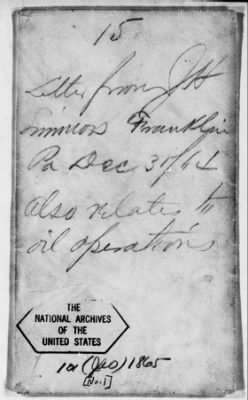 15
Letter from J H
Simmons Franklin
Pa Dec 30/64
also relates to
oil operations
THE
NATIONAL ARCHIVES
OF THE
UNITED STATES
101 (JAO) 1865
[No.1]